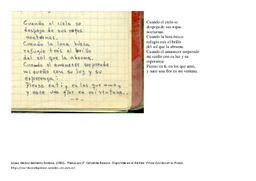 Cuando el cielo se
despoja de sus ropas
nocturnas.
Cuando la luna busca
refugio tras el brillo
del sol que la abruma.
Cuando el amanecer sorprende
mi sueño con su luz y su
esperanza:
Pienso en ti, en los que amo,
y nace una flor en mi ventana...
Cuando el cielo se
despoja de sus ropas
nocturnas.
Cuando la luna busca
refugio tras el brillo
del sol que la abruma.
Cuando el amanecer sorprende
mi sueño con su luz y su
esperanza:
Pienso en ti, en los que amo,
y nace una flor en mi ventana.